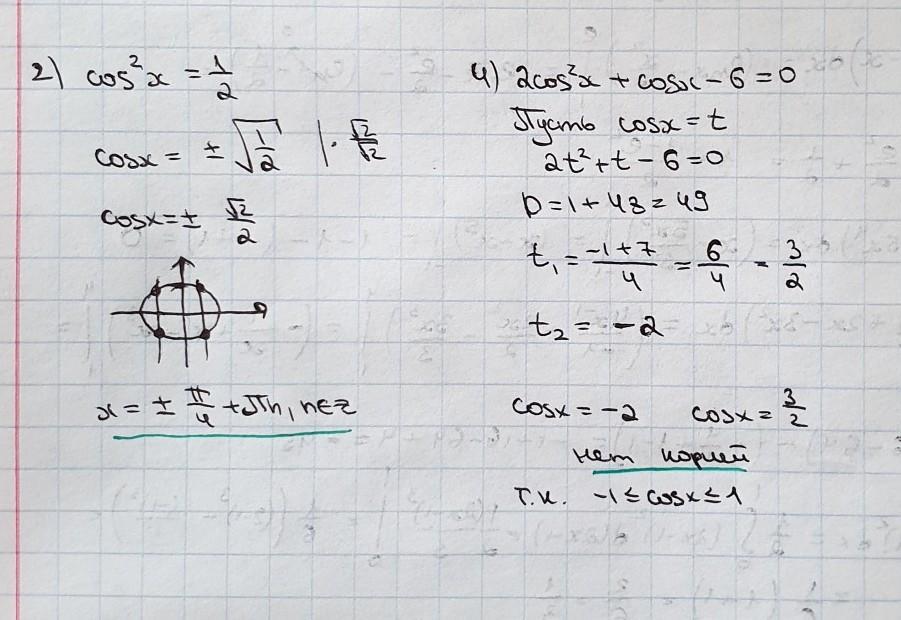 2) cos²x = 1/2
cosx = ± √(1/2) | · √2/√2
cosx = ± √2/2
x = ± π/4 + πn, n∈z
4) 2cos²x + cosx - 6 = 0
Пусть cosx = t
2t² + t - 6 = 0
D = 1 + 48 = 49
t₁ = (-1 + 7)/4 = 6/4 - 3/2
t₂ = -2
cosx = -2 cosx = 3/2
нет корней
т.к. -1 ≤ cosx ≤ 1